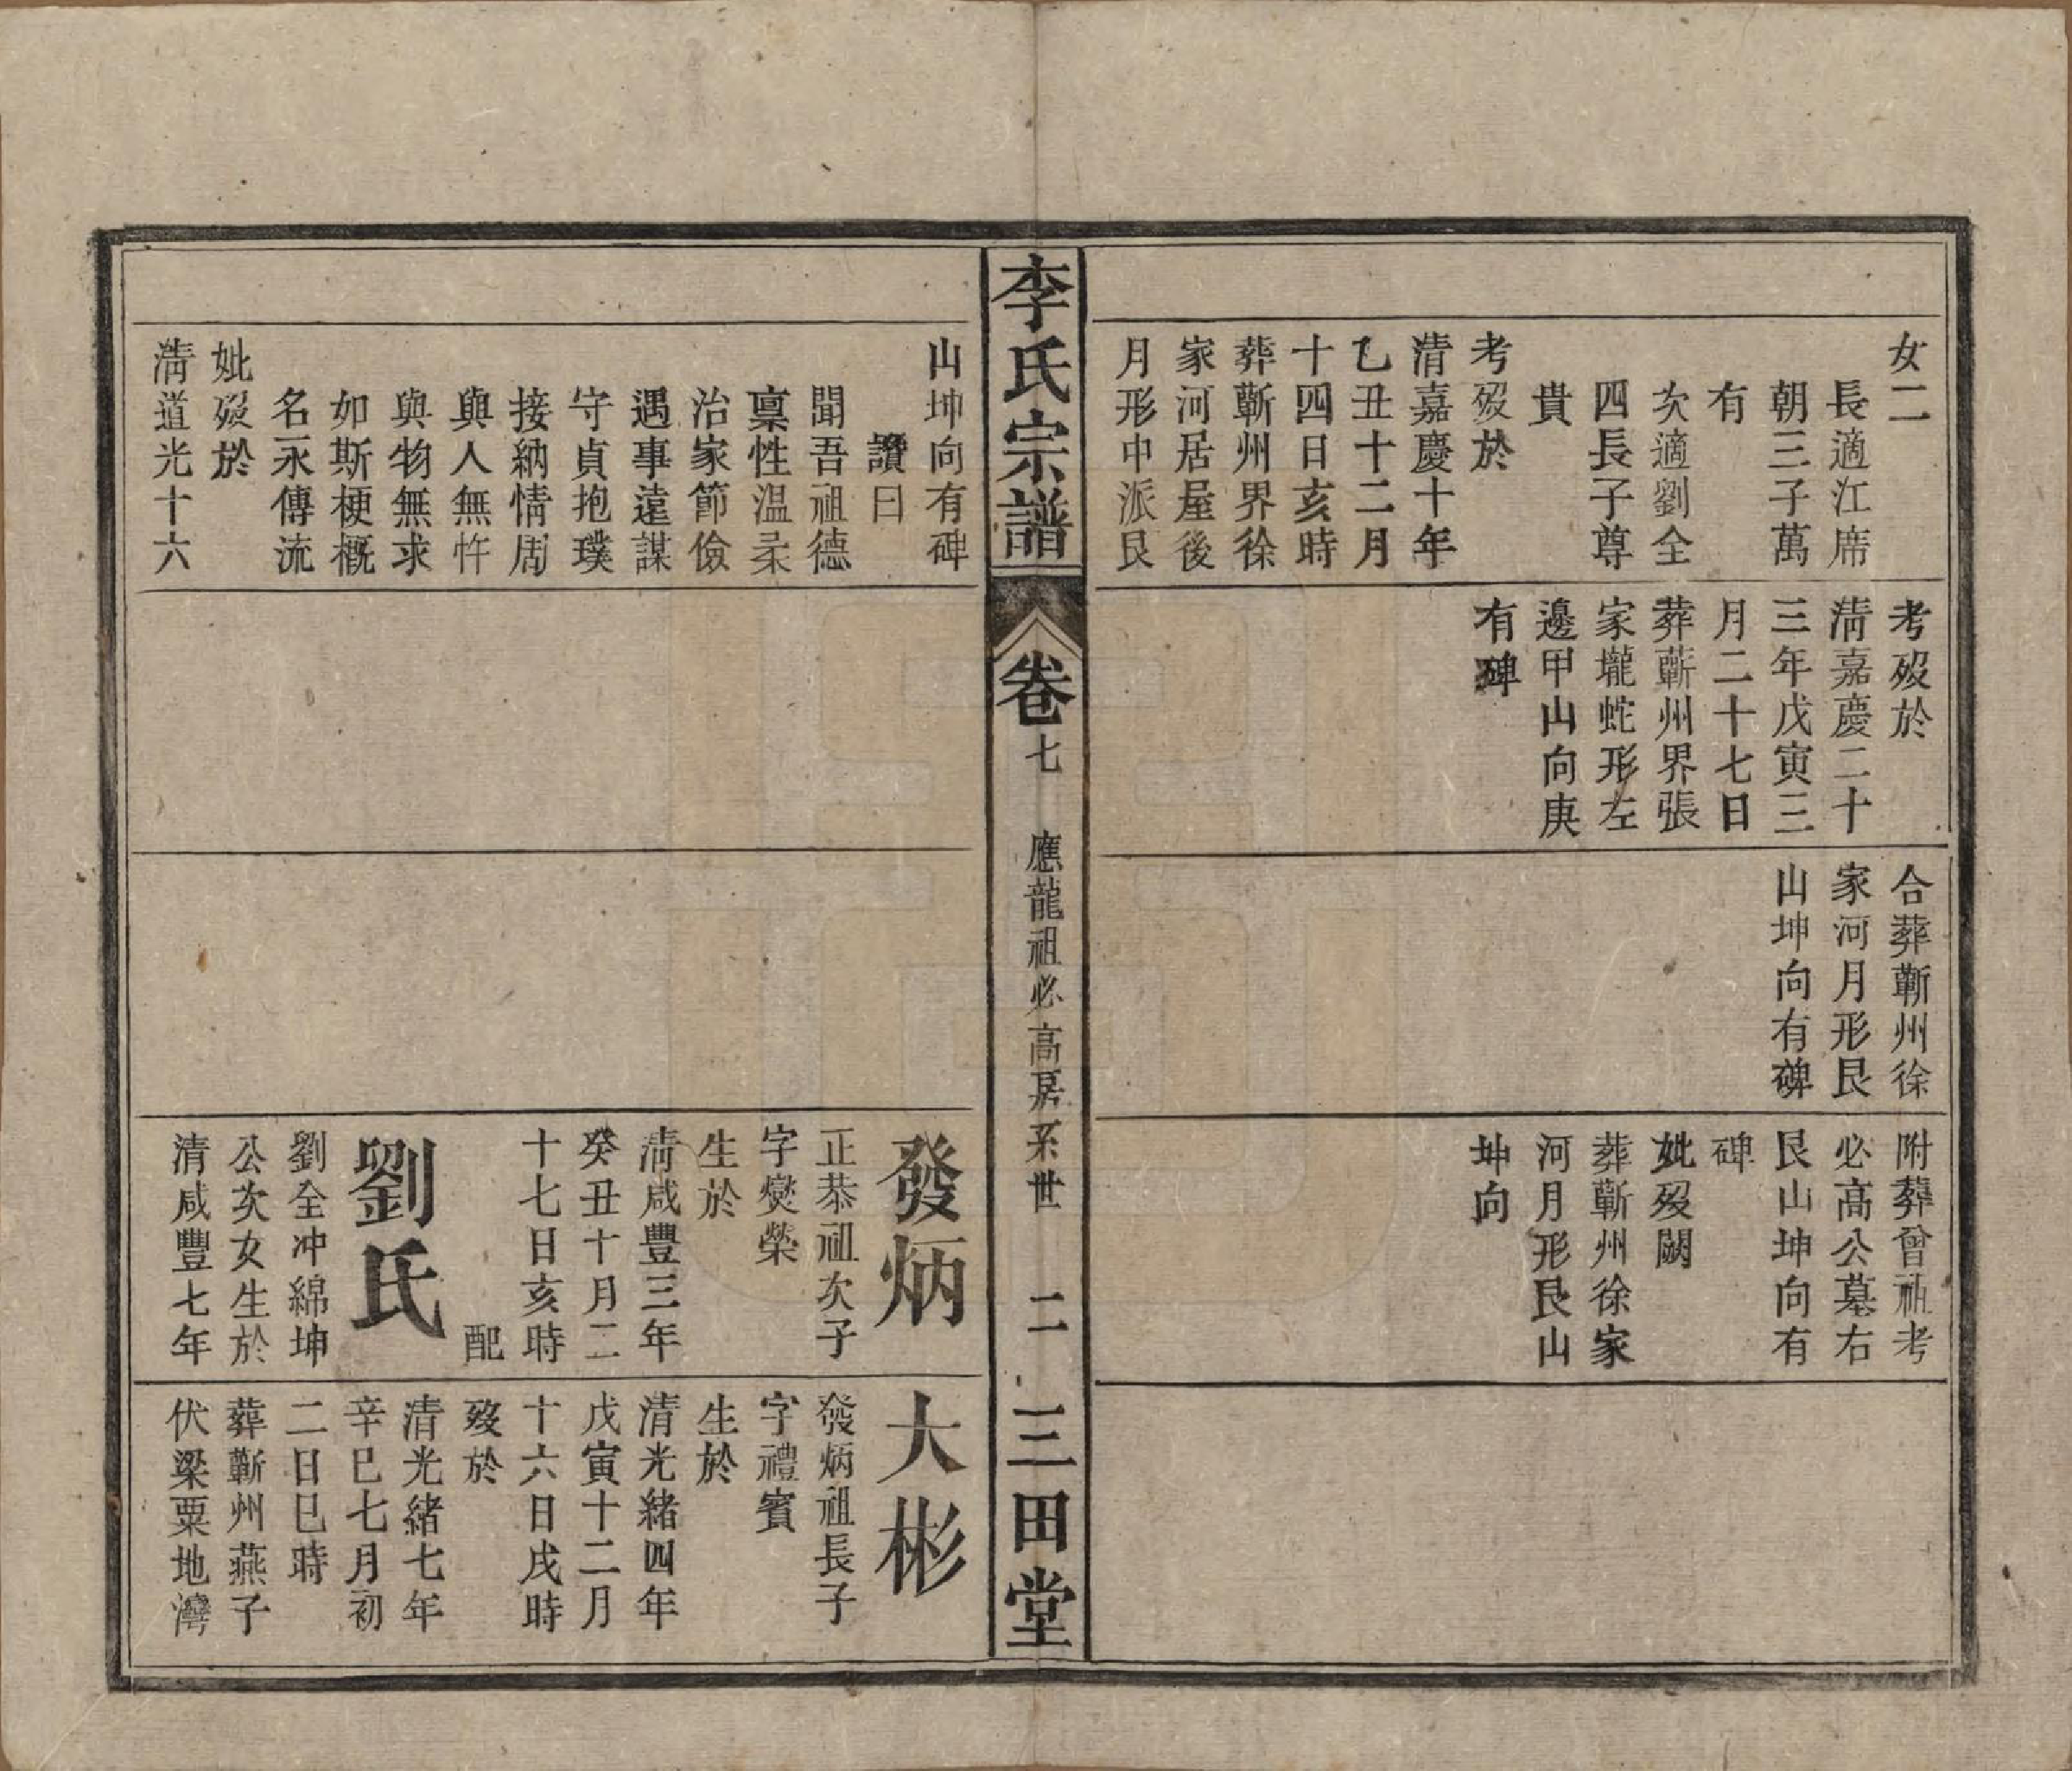 女二
長適江席
朝三子萬
有
次適劉全
四長子尊
貴
考歿於
清嘉慶十年
乙丑十二月
十四日亥時
葬蘄州界徐
家河居屋後
月形中派艮
考歿於
清嘉慶二十
三年戊寅三
月二十七日
葬蘄州界張
家壠蛇形左
邊甲山向庚
有碑
合葬蘄州徐
家河月形艮
山坤向有碑
附葬曾祖考
必高公墓右
艮山坤向有
碑
妣歿闕
葬蘄州徐家
河月形艮山
坤向
李氏宗譜
卷七
應龍祖必高房系世
二
三田堂
山坤向有碑
讚曰
聞吾祖德
稟性温柔
治家節儉
遇事遠謀
守貞抱璞
接納情周
與人無忤
與物無求
如斯梗概
名永傳流
妣歿於
清道光十六
發炳
正恭祖次子
字爕榮
生於
清咸豐三年
癸丑十月二
十七日亥時
配
劉氏
劉全冲綿坤
公次女生於
清咸豐七年
大彬
發炳祖長子
字禮賓
生於
清光緒四年
戊寅十二月
十六日戌時
歿於
清光緒七年
辛巳七月初
二日巳時
葬蘄州燕子
伏梁粟地灣